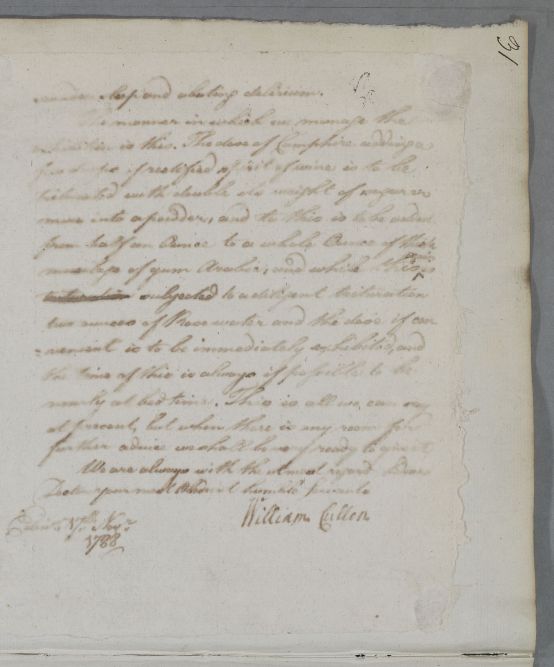 16
sleep and abating delirium.
The manner in which we manage the
is this. The dose of Camphire adding a
few drops of rectified spirit of wine is to be
triturated with double its weight of sugar or
more into a powder, and to this is to be added
from half an Ounce to a whole Ounce of thick
mucilage of gum Arabic, and while this is
subjected to a diligent trituration
two ounces of Rose water and the dose if con
-venient is to be immediately exhibited, and
the time of this is always if possible to be
nearly at bed time. This is all we can say
at present, but when there is any room for
further advice we shall be very ready to give it
We are always with the utmost regard Dear
Doctor your most Obedient humble servants
William Cullen
17th Novr
1788